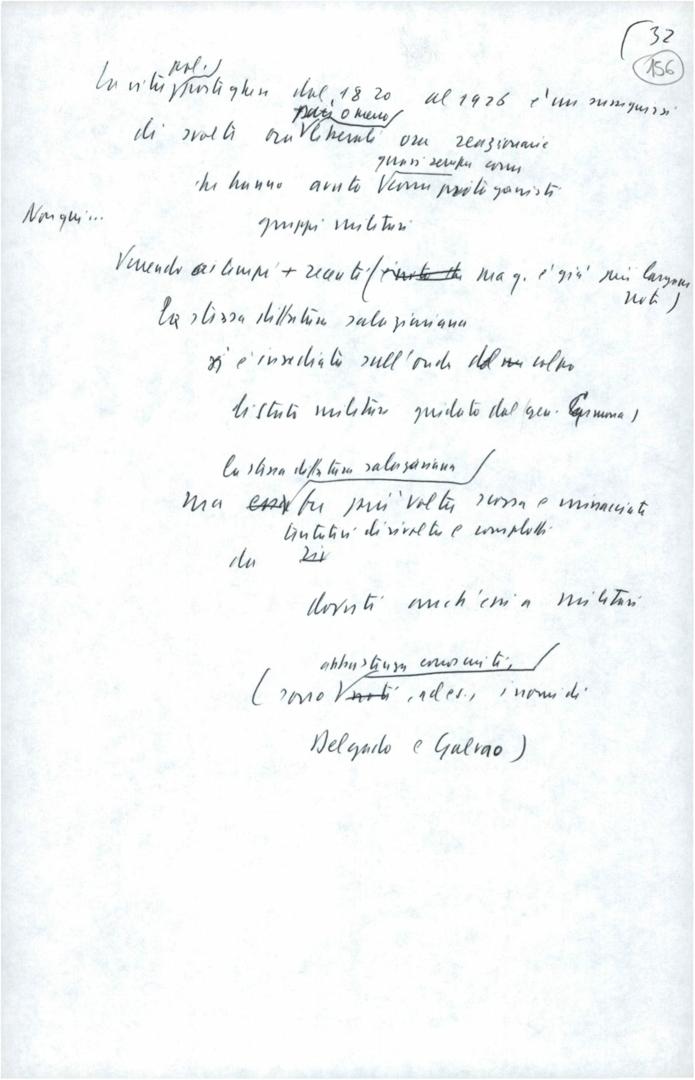 32
156
pol.
La vita portoghese dal 1820 al 1926 è un susseguirsi
più o meno
di svolte ora liberali ora reazionarie
quasi sempre come
che hanno avuto come protagonisti
Non qui...
gruppi militari
Venendo ai tempi + recenti ( ma q. è già più largam.
noto)
La stessa dittatura salazariana
si è insediata sull'onda del colpo
di stato militare guidato dal gen. Carmona)
la stessa dittatura salazariana
ma essa fu più volte scossa e minacciata
tentativi di rivolta e complotti
da
dovuti anch'essi a militari
abbastanza conosciuti,
(sono noti, ad es., i nomi di
Delgado e Galvao)